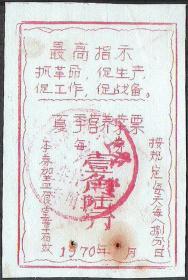 最高指示
抓革命，促生产，
促工作，促战备。
夏季营养菜票
每
壹角陆分
按规定每天每人捌分
本券加盖
有效
1970年 月